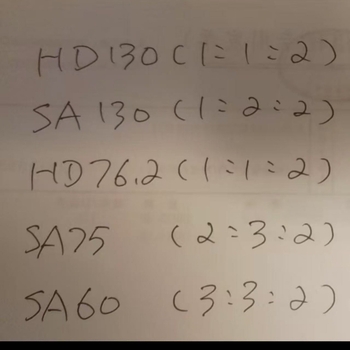 HD130(1:1:2)
SA130(1:2:2)
HD76.2(1:1:2)
SA75 (2:3:2)
SA60 (3:3:2)